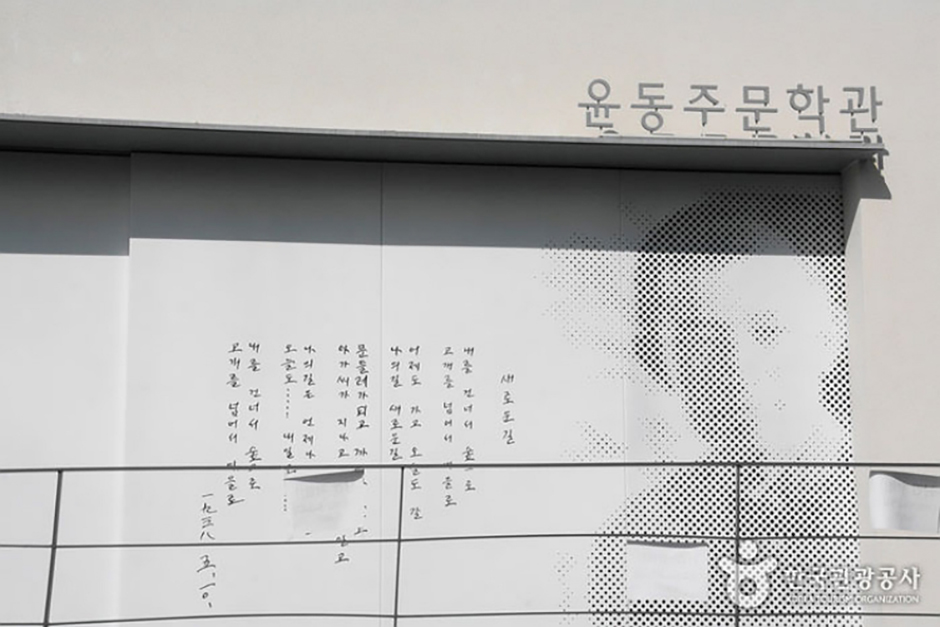 윤동주문학관
새로운길
내를 건너서 숲으로
고개를 넘어서 마을로
어제도 가고 오늘도 갈
나의길 새로운길
문들레가피고
아가씨가 지나고 일고
나의길은 언제나
오늘도..... 내일도.....
내를 건너서 숲으로
고개를 넘어서 마을로
一九三八 五, 一〇,
한국관광공사
KOREA TOURISM ORGANIZATION